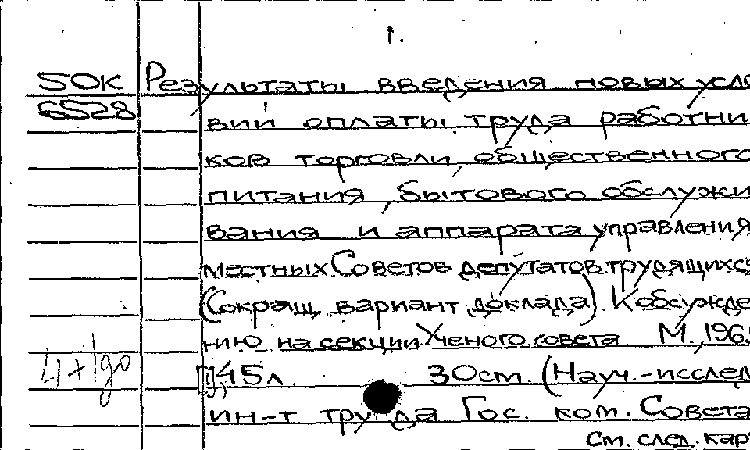 1.
50К Результаты введения новых усло
6528 вий оплаты труда работни
ков торговли, общественного
питания, бытового обслужи
вания и аппарата управления
местных Советов депутатов трудящихся
(Сокращ. вариант доклада). К обсужде
нию на секции Ученого совета М., 1965
[1], 45л 30см. (Науч.-исслед.
ин-т труда Гос. ком. Совета
См. след. кар